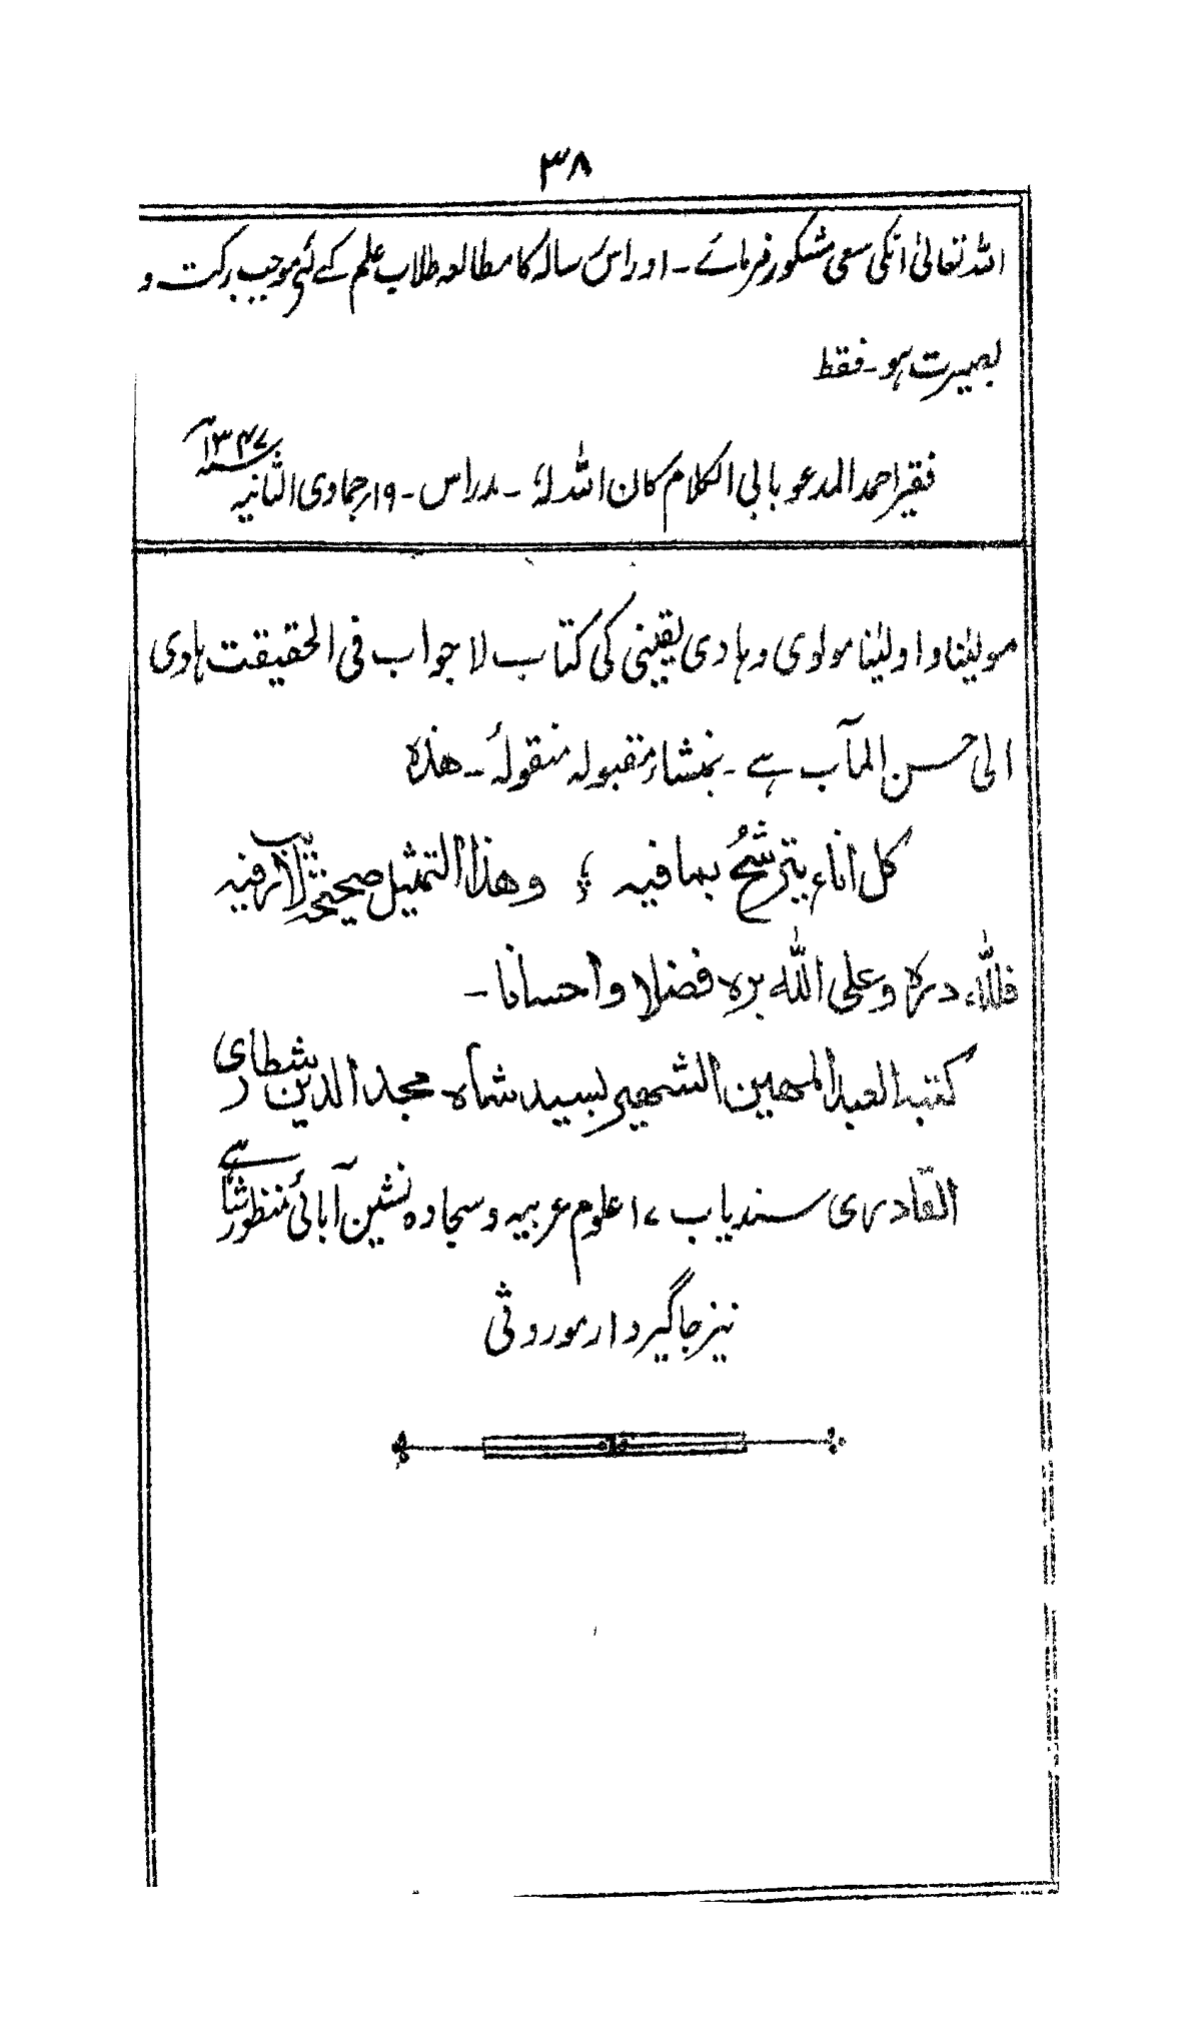 ۳۸
اللہ تعالیٰ انکی سعی مشکور فرمائے ۔ اور اس رسالہ کا مطالعہ طلاب علم کے لئے موجب برکت و
بصیرت ہو ۔ فقط
فقیر احمد المدعو بابی الکلام کان اللہ لہٗ ۔ مدراس ۔ ۱۹؍ جمادی الثانیہ سنہ ۱۳۴۷
مولیٰنا و اولیٰنا مولوی و ہادی یقینی کی کتاب لاجواب فی الحقیقت ہادی
الی حسن المآب ہے ۔ بمنشاء مقبولہ منقولہٗ ۔ ھذہ
کل اناء یترشحُ بما فیہ ؛ وھذا التمثیل صحیح لا ریب فیہ
فللّٰہ درہ وعلی اللّٰہ برہ فضلا واحسانا ۔
کتبہ العبد المھین الشھیر بسید شاہ مجد الدین شطاری
القادری سندیاب ۱۷ علوم عربیہ و سجادہ نشین آبائی منظور شاہی
نیز جاگیردار موروثی